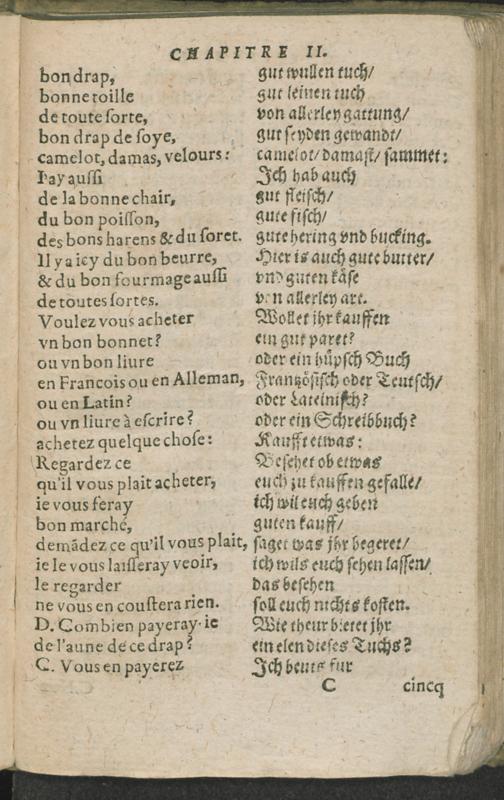 CHAPITRE II.
bon drap,
bonne toille
de toute ſorte,
bon drap de ſoye,
camelot, damas, velours:
I'ay auſſi
de la bonne chair,
du bon poiſſon,
des bons harens & du ſoret.
Il y a icy du bon beurre,
& du bon fourmage auſſi
de toutes ſortes.
Voulez vous acheter
vn bon bonnet?
ou vn bon liure
en Francois ou en Alleman,
ou en Latin?
ou vn liure à eſcrire?
achetez quelque choſe:
Regardez ce
qu'il vous plait acheter,
ie vous feray
bon marché,
demādez ce qu'il vous plait,
ie le vous laiſſeray veoir,
le regarder
ne vous en couſtera rien.
D. Combien payeray-ie
de l'aune de ce drap?
C. Vous en payerez
gut wullen tuch/
gut leinen tuch
von allerley gattung/
gut ſeyden gewandt/
camelot/ damaſt/ ſammet:
Ich hab auch
gut fleiſch/
gute fiſch/
gute hering vnd bucking.
Hier is auch gute butter/
vnd guten käſe
von allerley art.
Wollet jhr kauffen
ein gut paret?
oder ein hüpſch Buch
Frantzöſiſch oder Teutſch/
oder Lateiniſch?
oder ein Schreibbuch?
Kaufft etwas:
Beſehet ob etwas
euch zu kauffen gefalle/
ich wil euch geben
guten kauff/
ſaget was jhr begeret/
ich wils euch ſehen laſſen/
das beſehen
ſoll euch nichts koſten.
Wie theur bietet jhr
ein elen dieſes Tuchs?
Ich beuts fur
C cincq